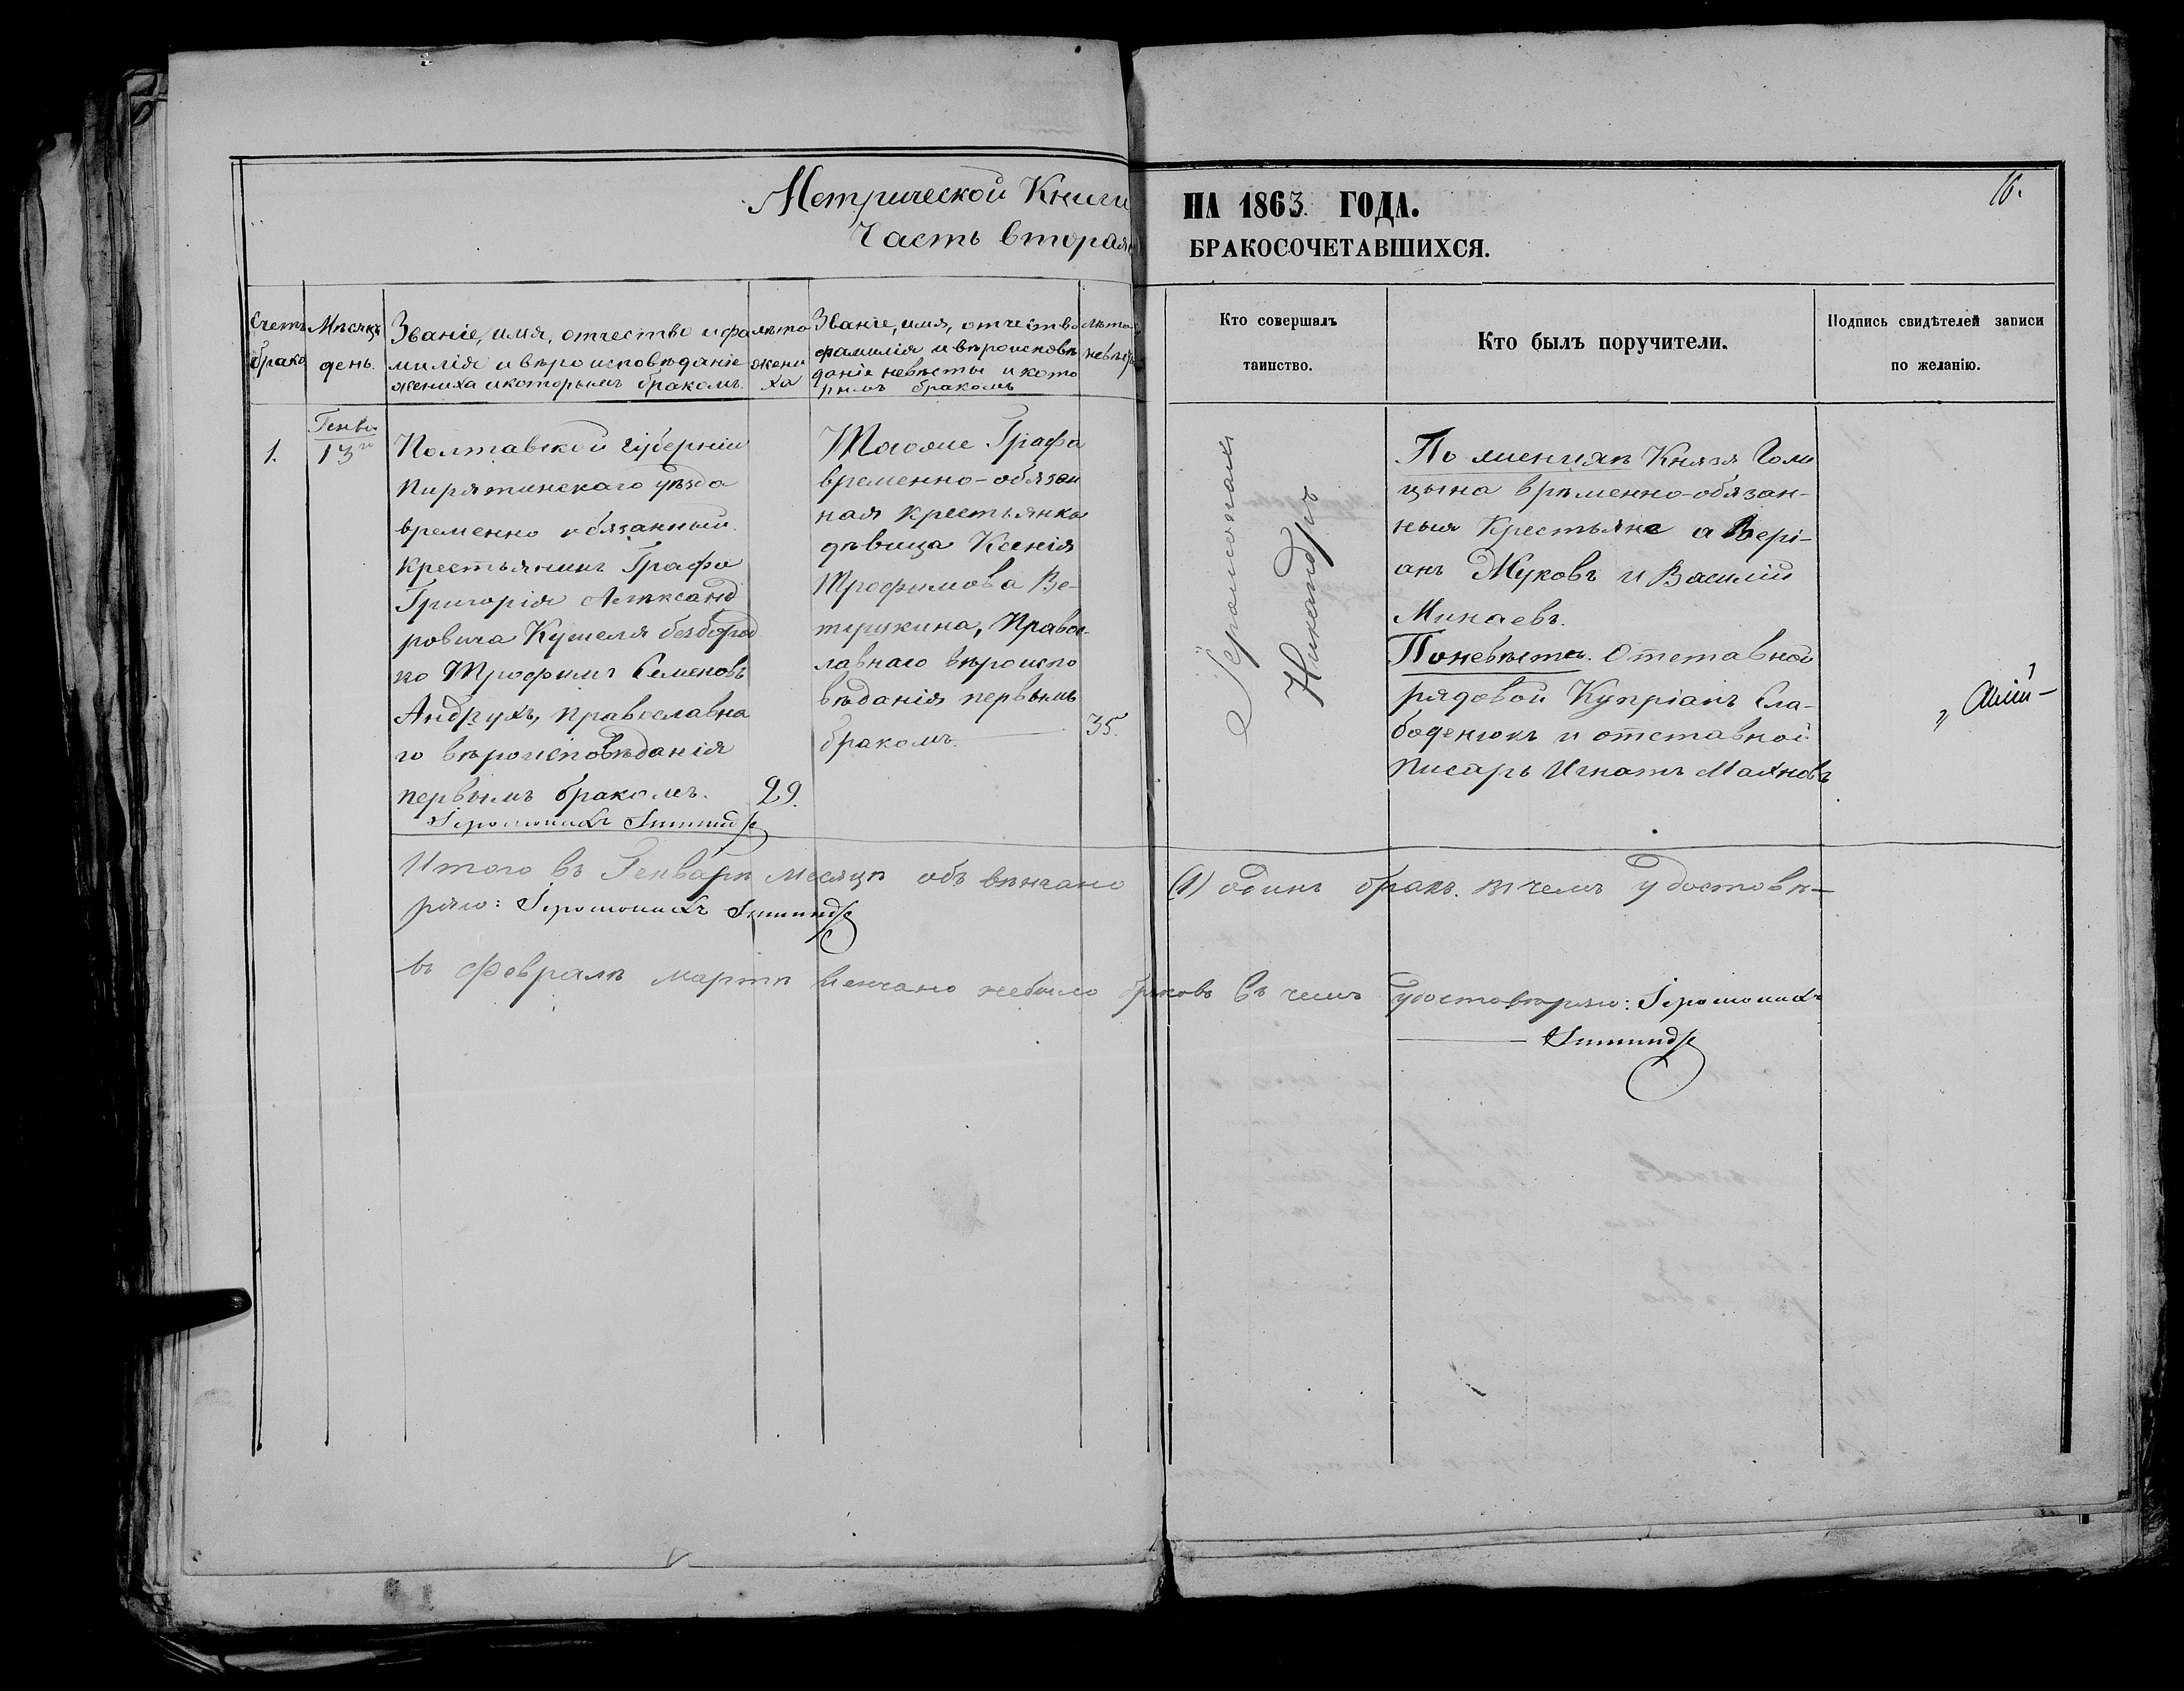 Метрической Книги НА 1863 ГОДА.
16.
Часть вторая БРАКОСОЧЕТАВШИХСЯ.
Счетъ брако
Мѣсяцъ день.
Званіе, имя, отчество и фа
милія и вѣроисповѣданіе
жениха и которымъ бракомъ.
лѣта
жени
ха
Званіе, имя, отчество
фамилія и вѣроисповѣ
даніе невѣсты и кото
рымъ бракомъ
лѣта
невѣст
Кто совершалъ
таинство.
Кто былъ поручители.
Подпись свидѣтелей записи
по желанію.
1.
Генва
13го
Полтавской губерніи
Пирятинскаго уѣзда
временно обязанный
крестьянинъ Графа
Григорія Александ
ровича Кушеля безбород
ко Трофимъ Семеновъ
Андрухъ, православна
го вѣроисповѣданія
первымъ бракомъ.
29.
Іеромонахъ
Графа
временно-обязан
ная крестьянка
дѣвица Ксенія
Трофимова Ве-
тушкина, Правос
лавнаго вѣроиспо
вѣданія первымъ
бракомъ.
35.
Іеромонахъ
Никандръ
По женихѣ Князя Голи
цына врѣменно-обязан-
ныя Крестьяне Авері-
анъ Жуковъ и Василій
Минаевъ.
По невѣстѣ. Отставной
рядовой Купріанъ Сла-
боденюкъ и отставной
писарь Игнатъ Махновъ
Итого въ Генварѣ месяцѣ объ вѣнчано (1) одинъ бракъ. въ чемъ удостовѣ-
ряю: Іеромонахъ
въ Февралѣ мартѣ венчано небыло браковъ въ чемъ удостовѣряю: Іеромонахъ